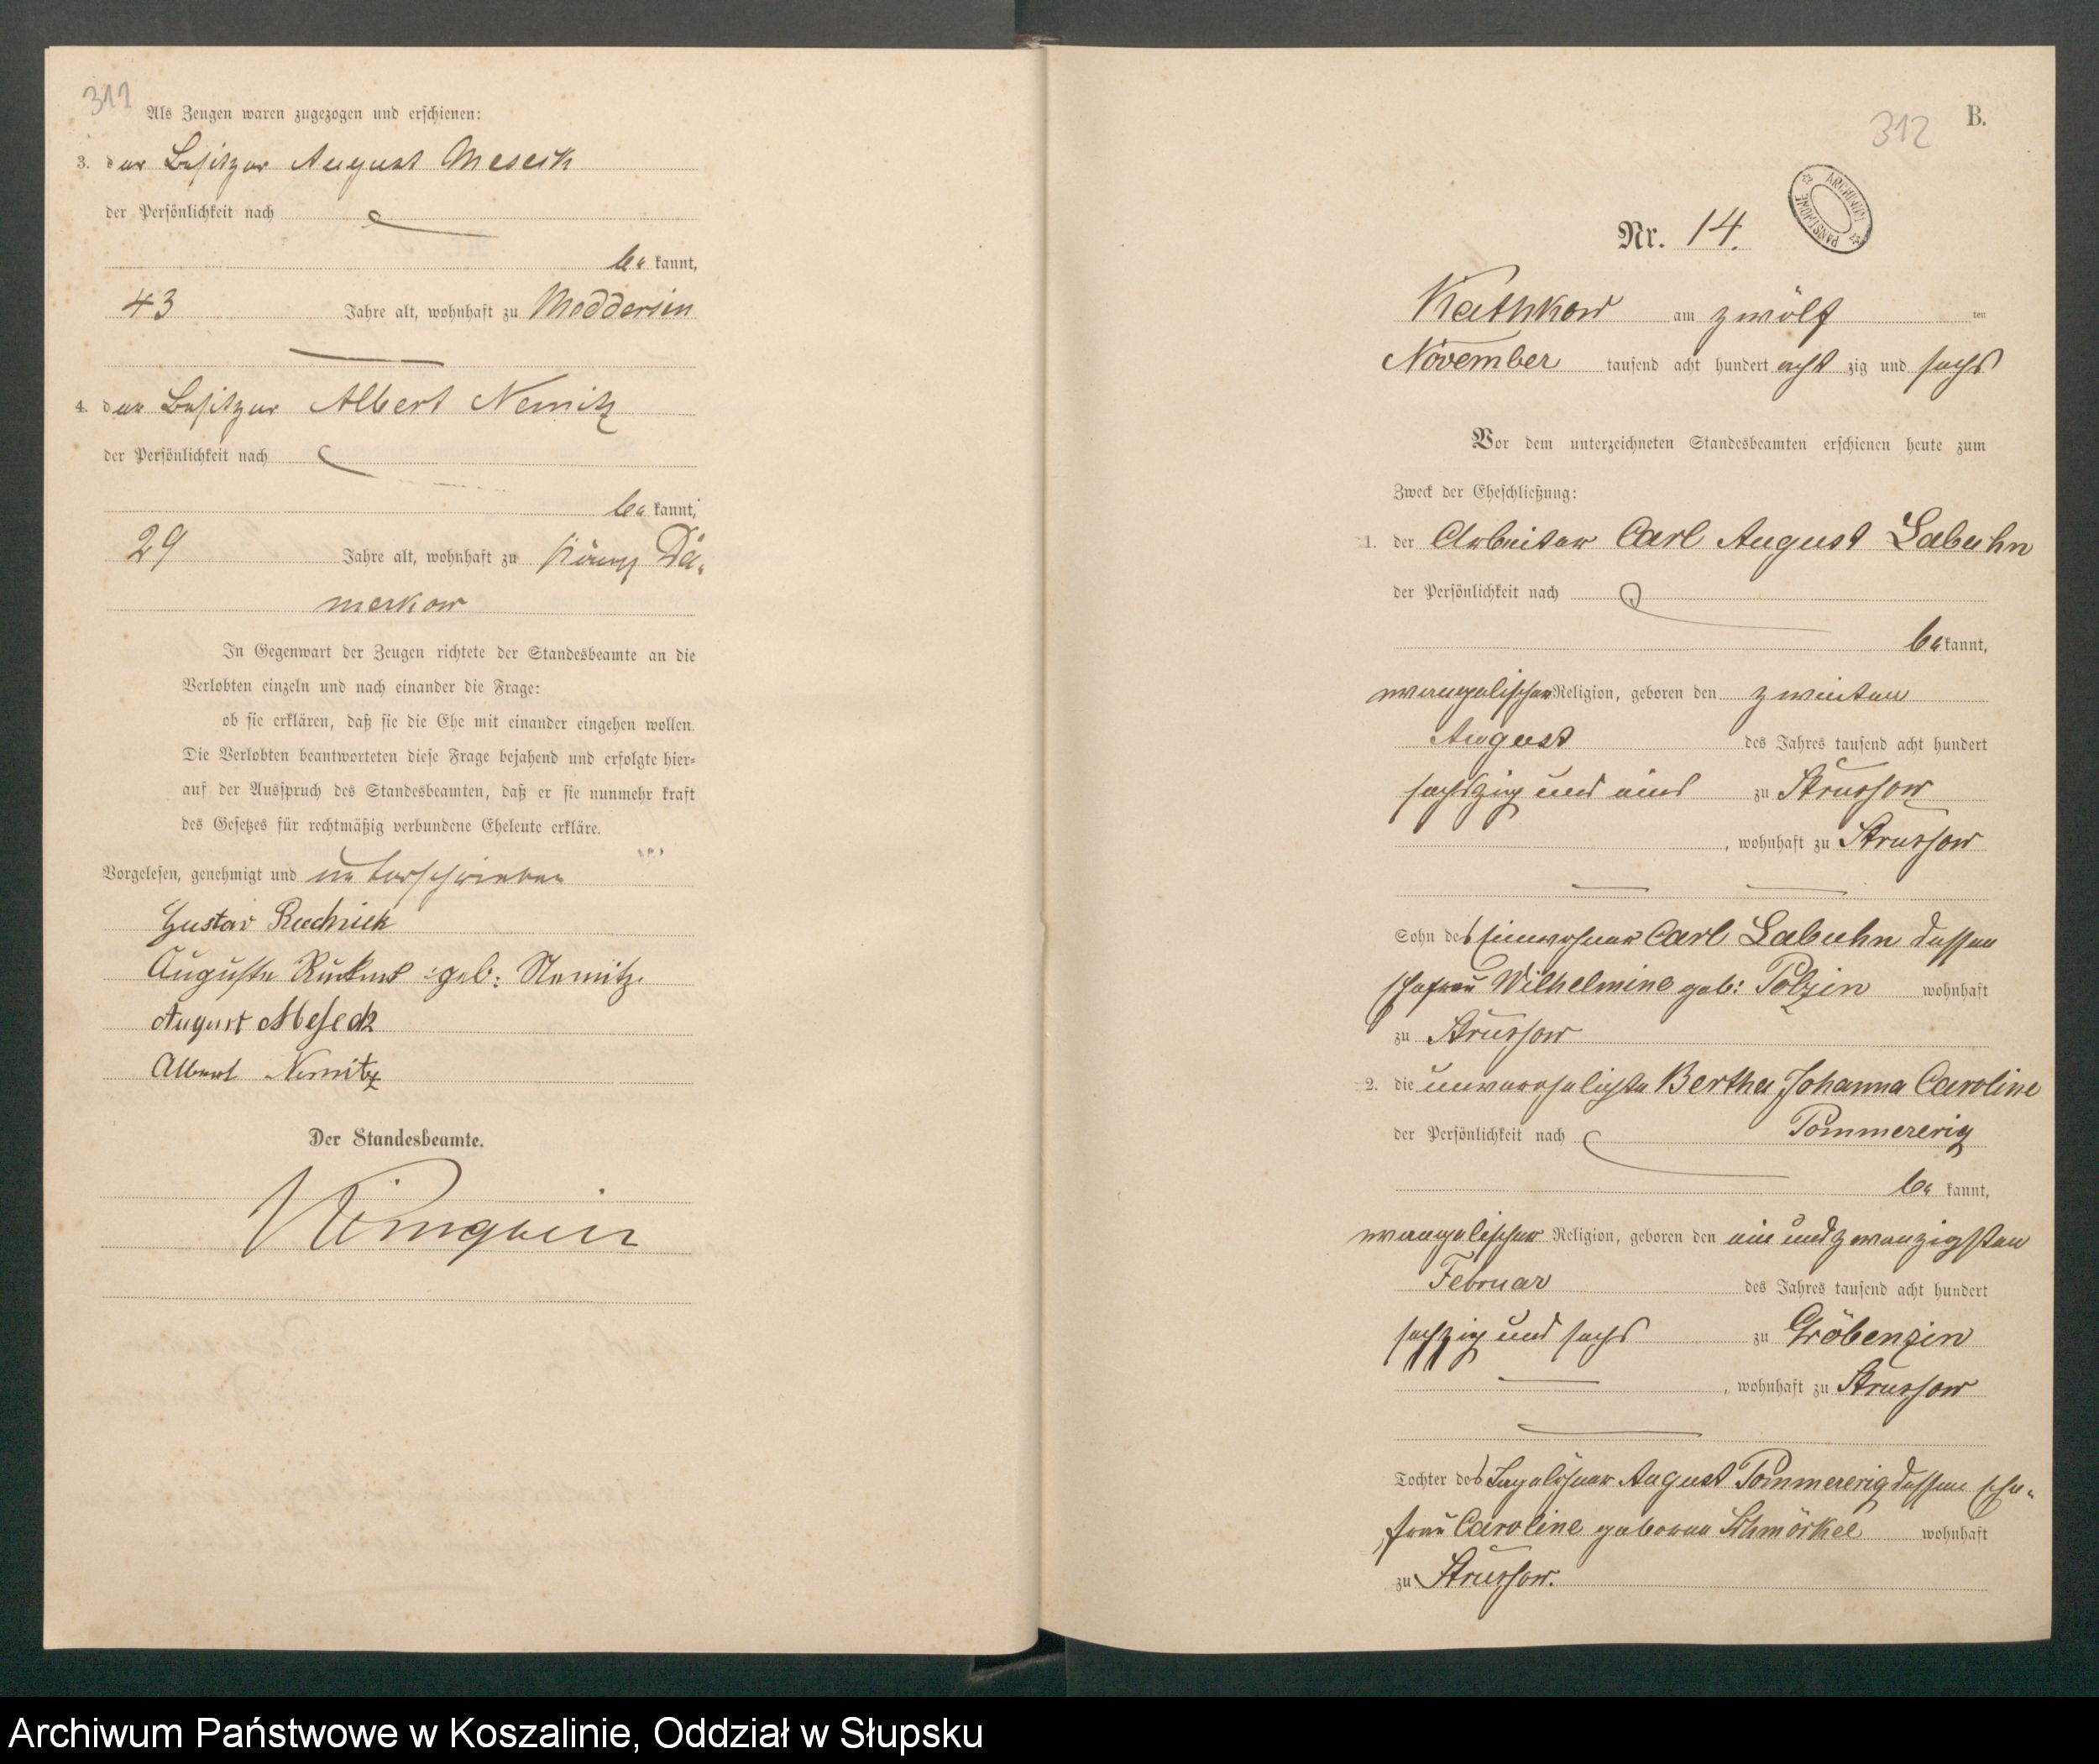 311
Als Zeugen waren zugezogen und erschienen:
3. der Besitzer August Meseck
der Persönlichkeit nach
be kannt,
43 Jahre alt, wohnhaft zu Moddersin
4. der Besitzer Albert Nemitz
der Persönlichkeit nach
be kannt,
29 Jahre alt, wohnhaft zu Königl Da-
merkow
In Gegenwart der Zeugen richtete der Standesbeamte an die
Verlobten einzeln und nach einander die Frage:
ob sie erklären, daß sie die Ehe mit einander eingehen wollen.
Die Verlobten beantworteten diese Frage bejahend und erfolgte hier-
auf der Ausspruch des Standesbeamten, daß er sie nunmehr kraft
des Gesetzes für rechtmäßig verbundene Eheleute erkläre.
Vorgelesen, genehmigt und unterschrieben
Gustav
Auguste geb: Nemitz.
August Meseck
Albert Nemitz
Der Standesbeamte.
312 B.
ARCHIWUM PAŃSTWOWE
Nr. 14.
Kathkow am zwölf ten
November tausend acht hundert acht zig und sechs
Vor dem unterzeichneten Standesbeamten erschienen heute zum
Zweck der Eheschließung:
1. der Arbeiter Carl August Labuhn
der Persönlichkeit nach
be kannt,
evangelischer Religion, geboren den zweiten
August des Jahres tausend acht hundert
sechszig und eins zu Strussow
, wohnhaft zu Strussow
Sohn des Einwohner Carl Labuhn dessen
Ehefrau Wilhelmine geb: Polzin wohnhaft
zu Strussow
2. die unverehelichte Bertha Johanna Caroline
der Persönlichkeit nach Pommerenig
be kannt,
evangelischer Religion, geboren den ein und zwanzigsten
Februar des Jahres tausend acht hundert
sechzig und sechs zu Gröbenzin
, wohnhaft zu Strussow
Tochter des Tagelöhner August Pommerenig dessen Ehe-
frau Caroline geborene Schmörkel wohnhaft
zu Strussow.
Archiwum Państwowe w Koszalinie, Oddział w Słupsku